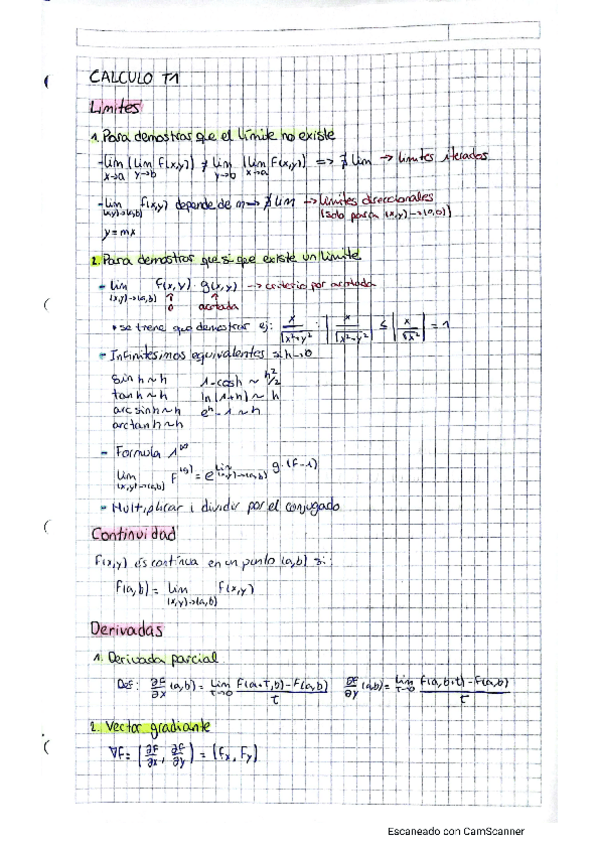 CALCULO T1
Límites
1. Para demostrar que el límite no existe
- lim (lim F(x,y)) ≠ lim (lim F(x,y)) => ∄ lim → límites iterados
x→a y→b y→b x→a
- lim F(x,y) depende de m → ∄ lim → límites direccionales
(x,y)→(a,b) (solo para (x,y)→(0,0))
y=mx
2. Para demostrar que si que existe un límite
- lim F(x,y) · g(x,y) → criterio por acotada
(x,y)→(a,b) ↑ ↑
0 acotada
• se tiene que demostrar ej: x/√x²+y² : |x/√x²+y²| ≤ |x/√x²| = 1
- Infinitesimos equivalentes si h→0
sin h ~ h 1-cosh ~ h²/2
tan h ~ h ln(1+h) ~ h
arcsinh ~ h eʰ-1 ~ h
arctanh ~ h
- Formula 1^∞
lim F^(g) = e^lim (x,y)→(a,b) g·(F-1)
(x,y)→(a,b)
- Multiplicar i dividir por el conjugado
Continuidad
F(x,y) és contínua en un punto (a,b) si:
F(a,b) = lim F(x,y)
(x,y)→(a,b)
Derivadas
1. Derivada parcial
Def: ∂F/∂x (a,b) = lim T→0 F(a+T,b)-F(a,b)/t ∂F/∂y (a,b) = lim T→0 F(a,b+t)-F(a,b)/t
2. Vector gradiante
∇F = (∂F/∂x, ∂F/∂y) = (Fx, Fy)
Escaneado con CamScanner